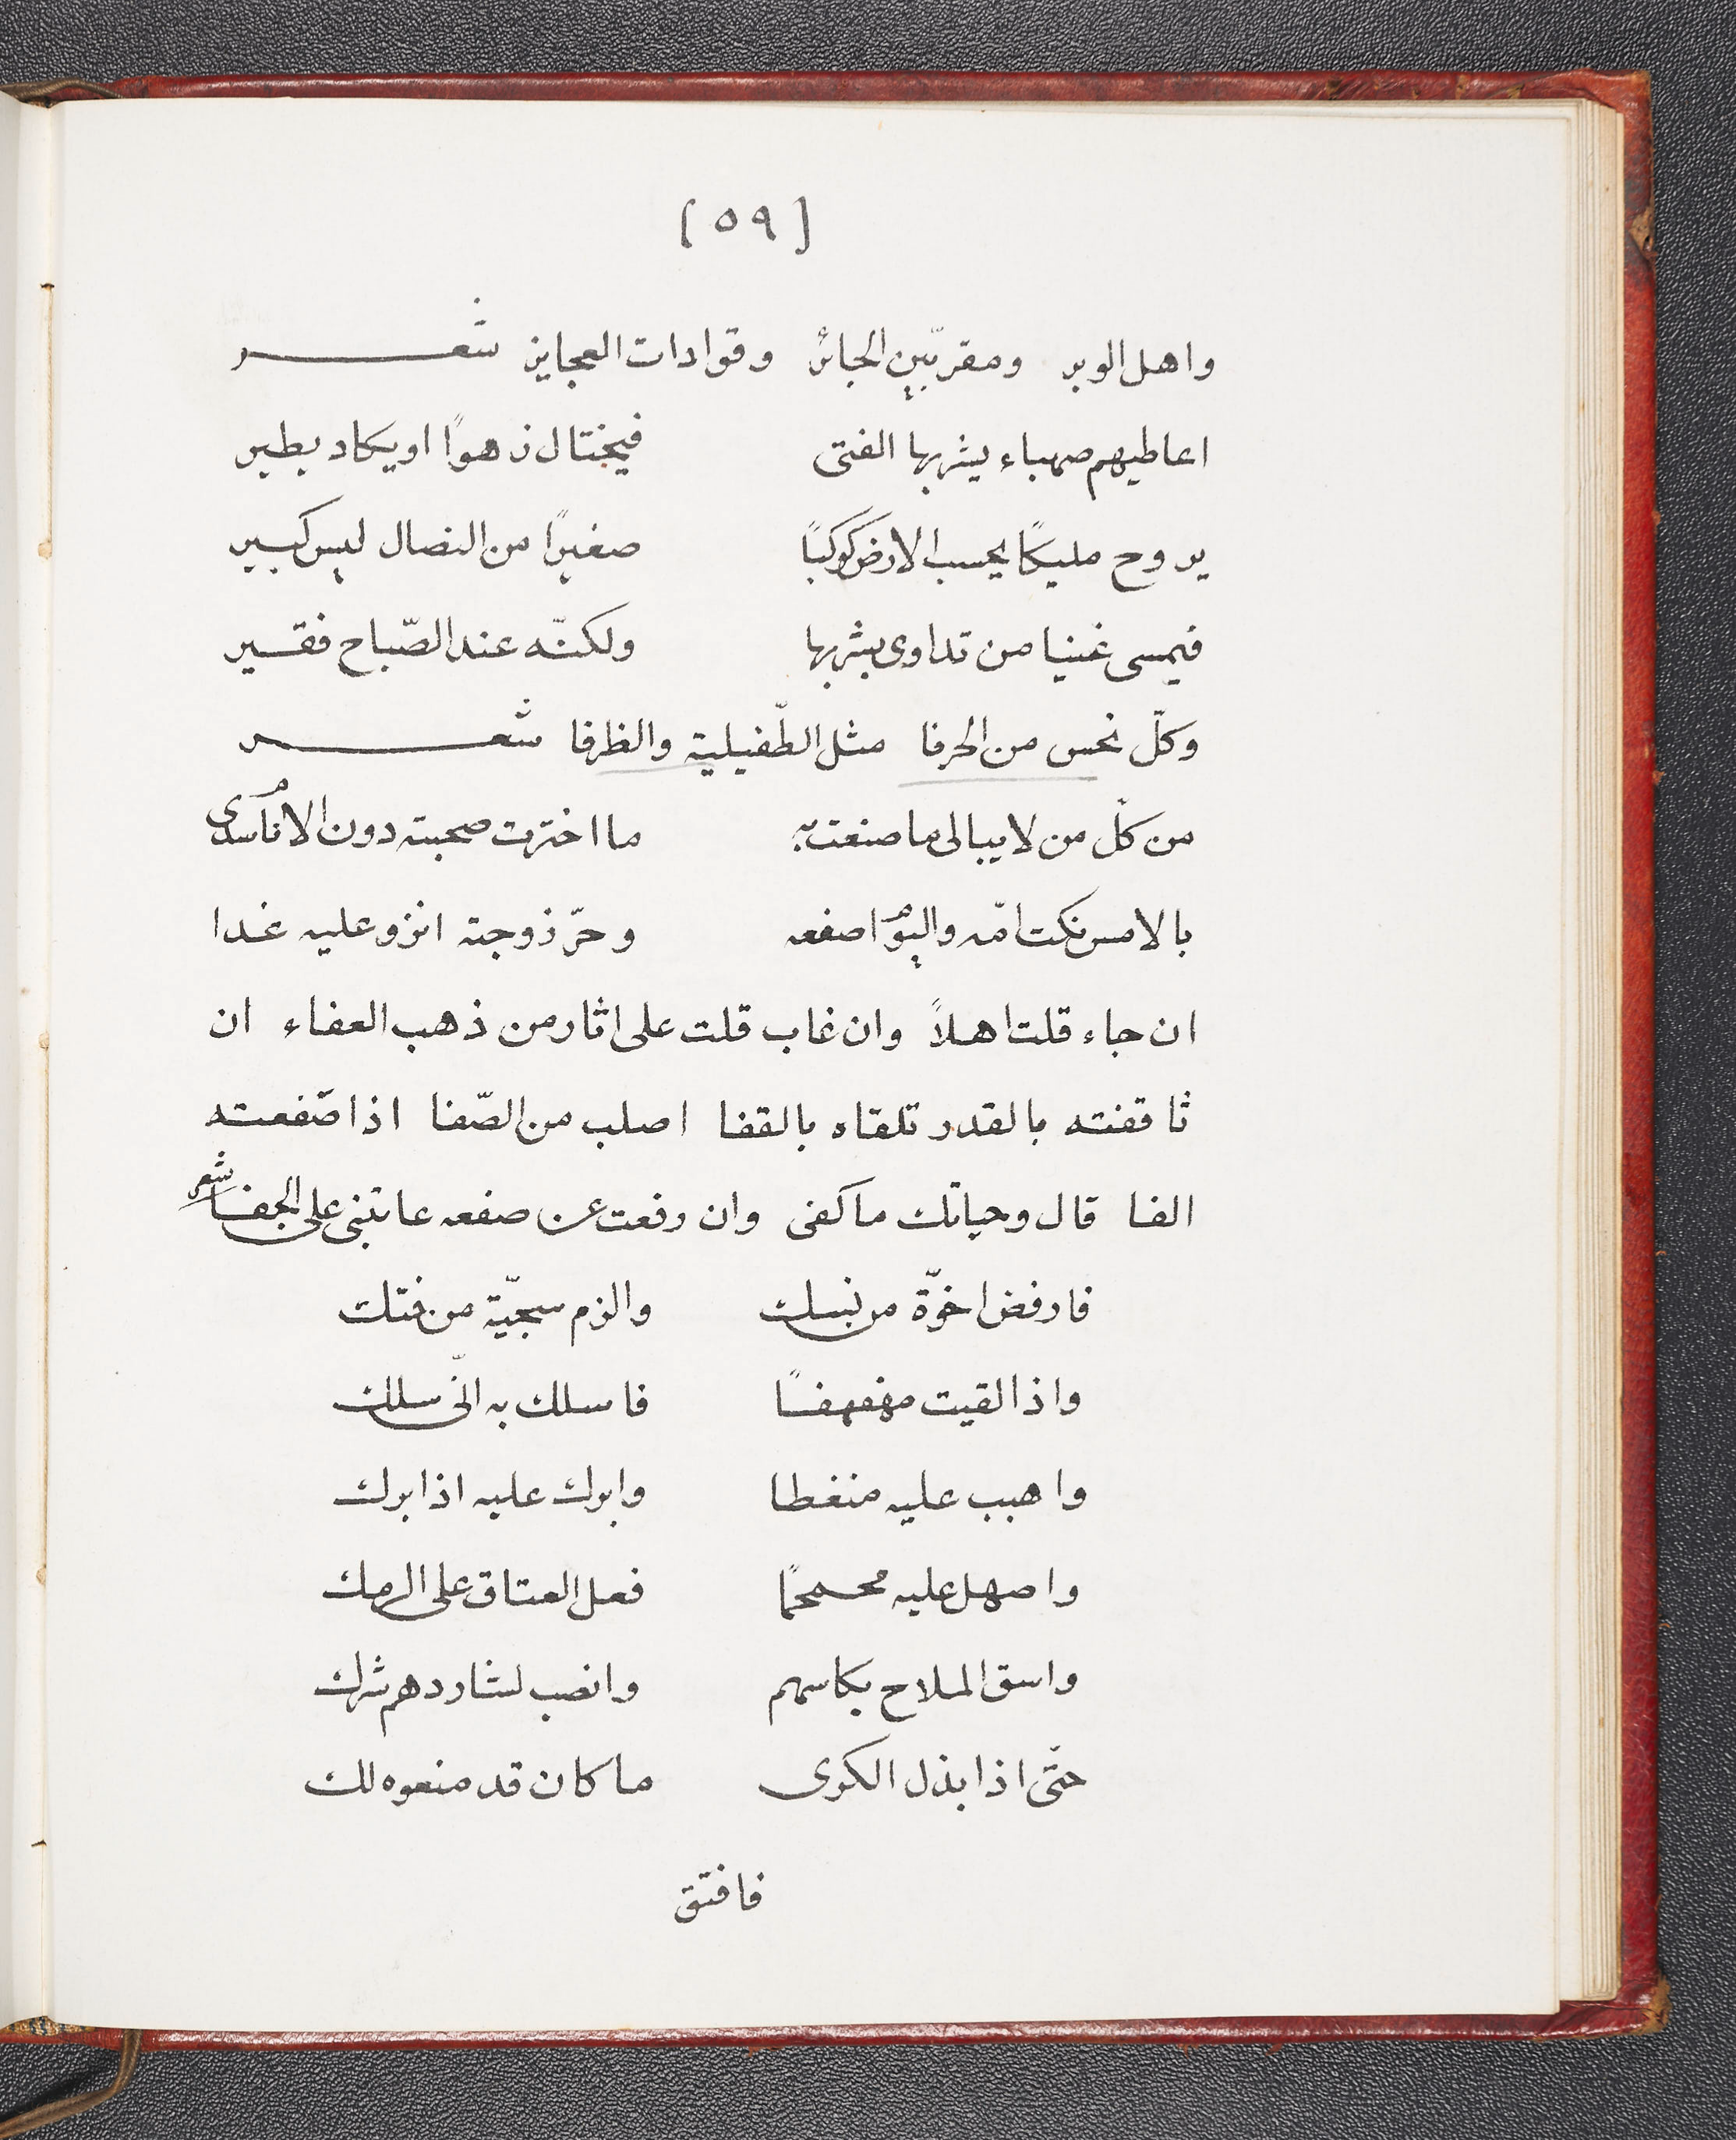 [٥٩]
واهل الوبر ومقربّين الجبائر وقوادات العجايز شعر
اعاطيهم صهباء يشربها الفتى فيختال زهوًا او يكاد يطير
يروح مليكًا يحسب الارض كوكبًا صغيرًا من النصال ليس كبير
فيمسى غنيا من تداوى بشربها ولكنّه عند الصّباح فقير
وكلّ نحس من الحرفا مثل الطّفيلية والظرفا شعر
من كلّ من لا يبالى ما صنعت به ما اخترت صحبته دون الانام سدى
بالامس نكت امّه واليوم اصفعه وحرّ زوجته انزو عليه غدا
ان جاء قلت اهلاً وان غاب قلت على اثار من ذهب العفاء ان
ثاقفته بالقدر تلقاه بالقفا اصلب من الصّفا اذا صفعته
الفا قال وحياتك ما كفى وان رفعت عن صفعه عاتبنى على الجفا شعر
فارفض اخوّة من نسك والزم سجيّة من فتك
واذا لقيت مهفهفًا فاسلك به انّى سلك
واهبب عليه منغطا وابرك عليه اذا برك
واصهل عليه محمحمًا فعل العتاق على الرمك
واسق الملاح بكاسهم وانصب لشاردهم شرك
حتّى اذا بذل الكرى ما كان قد منعوه لك
فافتق